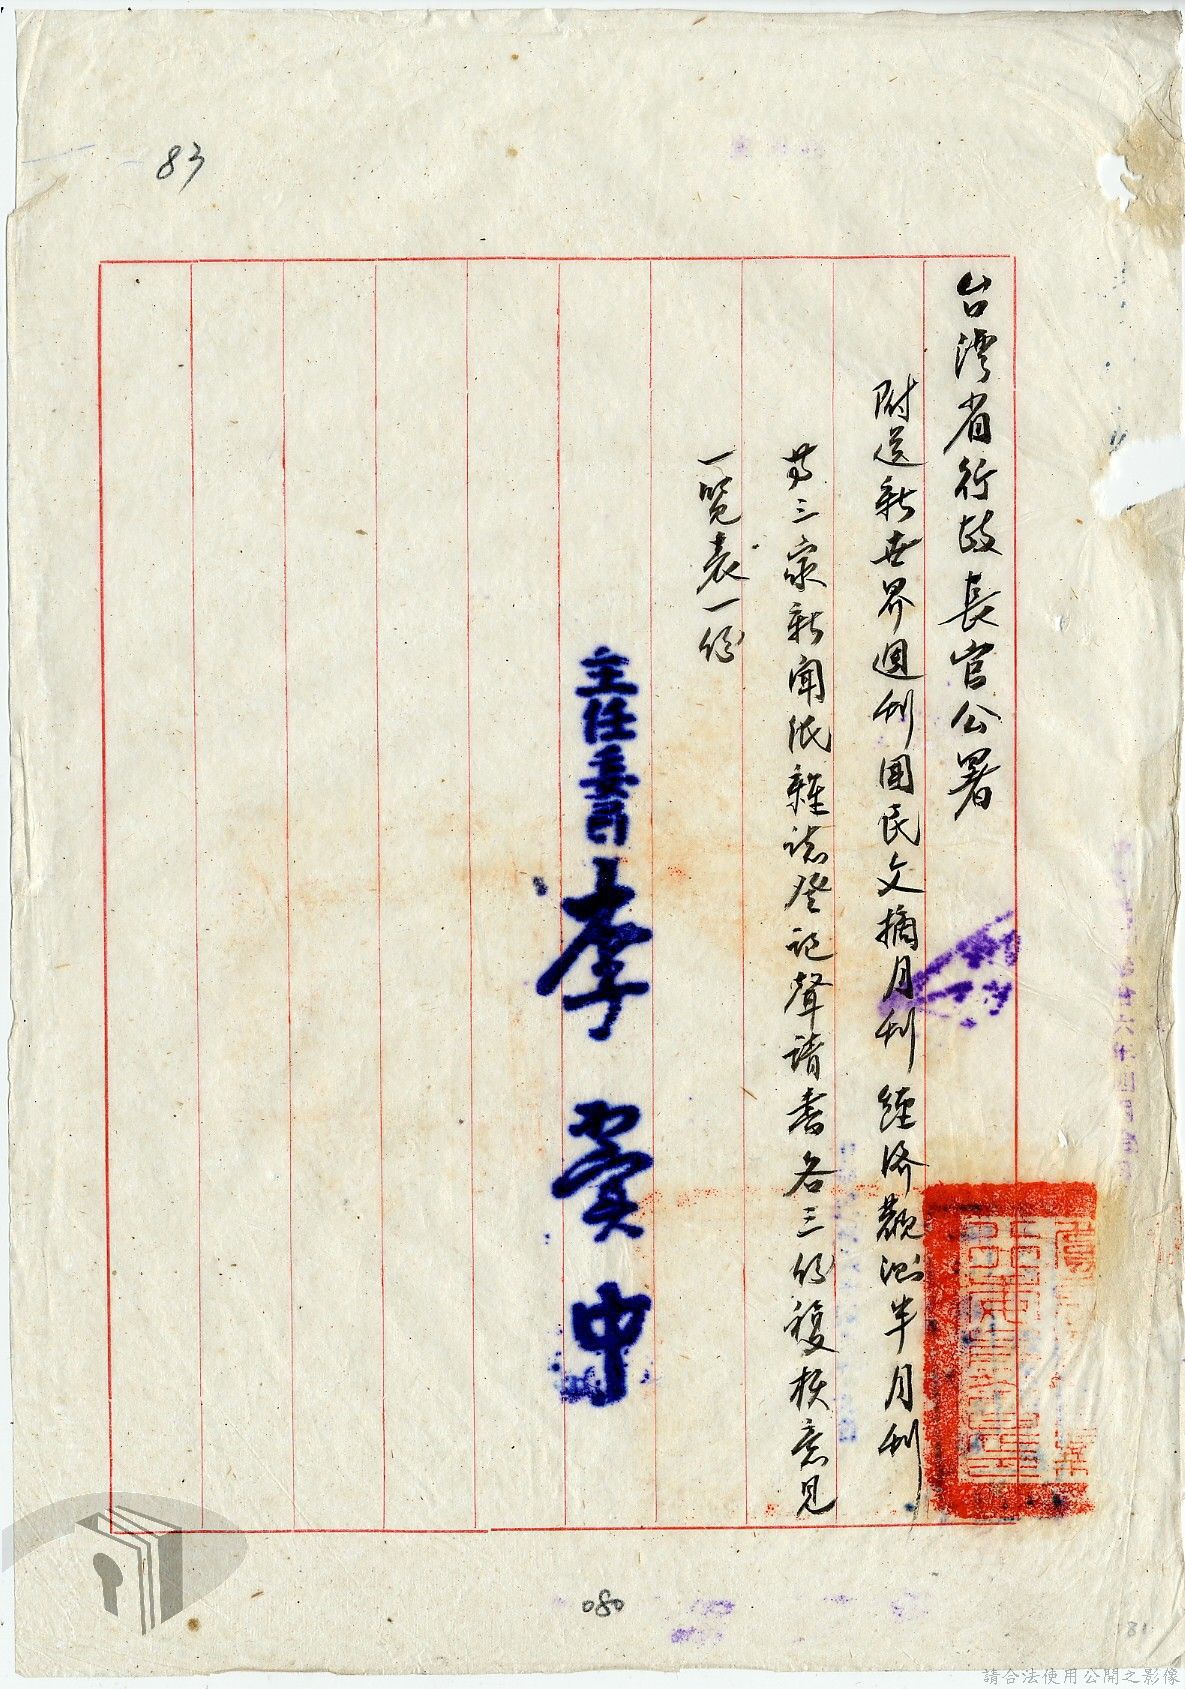 台灣省行政長官公署
附送新世界週刊國民文摘月刊經濟觀測半月刊
等三家新聞紙雜誌登記聲請書各三份複核意見
一覽表一份
主任委員 李翼中
83
080
181
請合法使用公開之影像